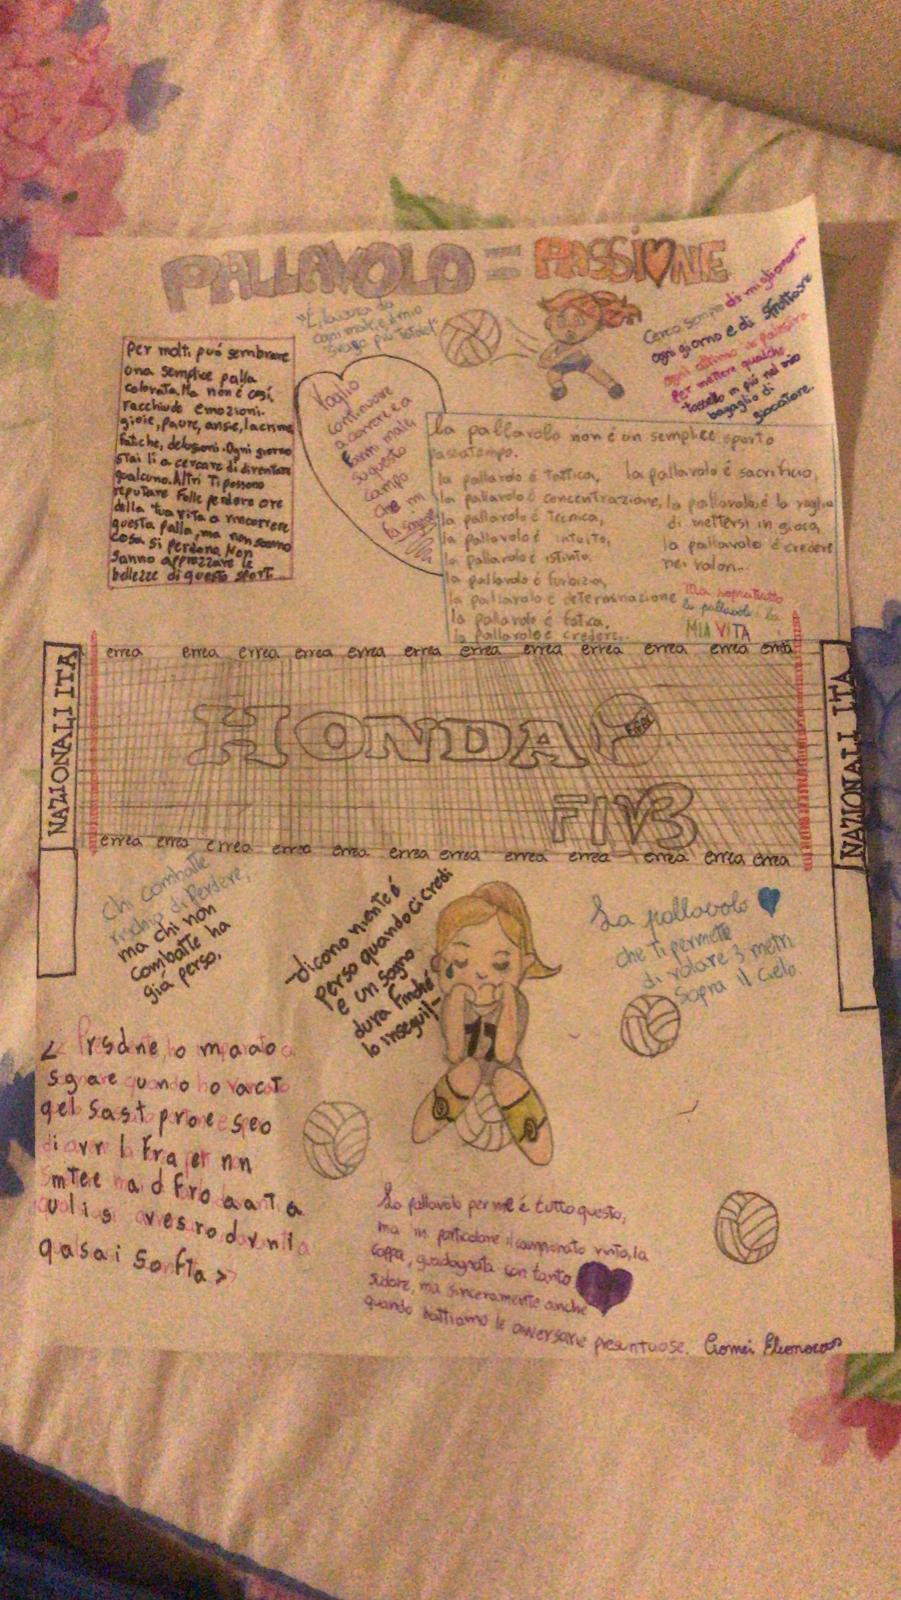 PALLAVOLO = PASSIONE
"È la cura da
ogni male, è il mio
svago più totale"
Cerco sempre di migliorarmi
ogni giorno e di sfruttare
ogni attimo in palestra
per mettere qualche
tassello in più nel mio
bagaglio di
giocatore.
Per molti può sembrare
una semplice palla
colorata. Ma non è così,
racchiude emozioni.
gioie, paure, ansie, lacrime
fatiche, delusioni. Ogni giorno
stai lì a cercare di diventare
qualcuno. Altri ti possono
reputare folle perdere ore
della tua vita a rincorrere
questa palla, ma non sanno
cosa si perdono. Non
sanno apprezzare le
bellezze di questo sport...
Voglio
continuare
a correre e a
farmi male,
su questo
campo
che mi
fa sognare
la pallavolo non é un semplice sporto
passatempo.
la pallavolo é tattica,
la pallavolo é concentrazione,
la pallavolo é tecnica,
la pallavolo é intuito,
la pallavolo é istinto.
la pallavolo é furbizia,
la pallavolo é determinazione
la pallavolo é fatica,
la pallavolo é credere..
la pallavolo é sacrificio,
la pallavolo é la voglia
di mettersi in gioco,
la pallavolo é credere
nei valori...
Ma soprattutto
la pallavolo é la
MIA VITA
NAZIONALI ITA
errea errea errea errea errea errea errea errea errea errea errea errea
HONDA
FIVB
NAZIONALI ITA
errea errea errea errea errea errea errea errea errea errea errea errea
Chi combatte
rischia di perdere,
ma chi non
combatte ha
già perso.
-dicono niente é
perso quando ci credi
e un sogno
dura finché
lo insegui!-
La pallavolo
che ti permette
di volare 3 metri
sopra il cielo.
11
La pallavolo per me é tutto questo,
ma in particolare il campionato vinto, la
coppa, guadagnata con tanto
sudore, ma sinceramente anche
quando battiamo le avversarie presuntuose.